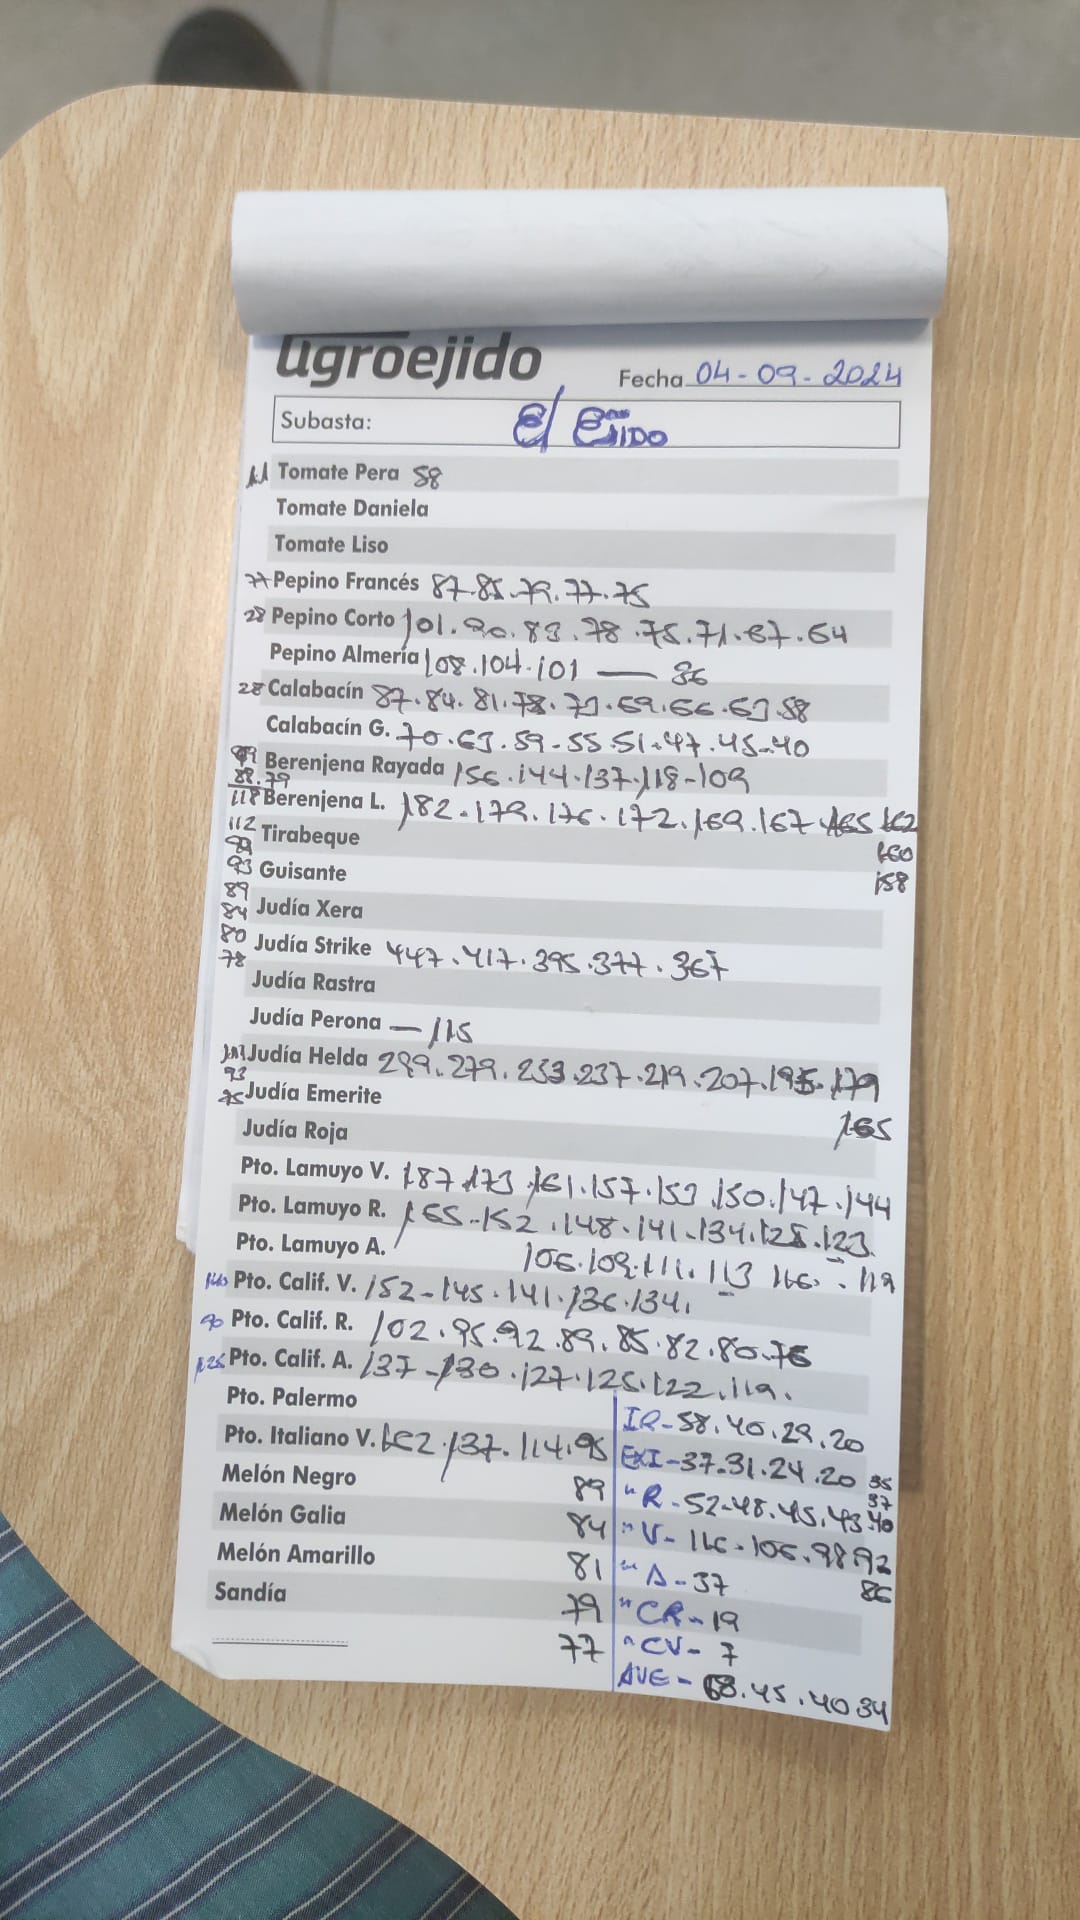 agroejido
Fecha 04-09-2024
Subasta: El EJIDO
Tomate Pera 58
Tomate Daniela
Tomate Liso
77 Pepino Francés 87.85.79.77.75
28 Pepino Corto 101.90.83.78.75.71.67.64
Pepino Almería 108.104.101 — 36
28 Calabacín 87.84.81.78.73.69.66.63.58
Calabacín G. 70.63.59-55.51.47.45-40
99 Berenjena Rayada 156.144.137.118-109
88.79
118 Berenjena L. 182.179.176.172.169.167.165 162
112 Tirabeque 160
93 Guisante 158
89
84 Judía Xera
80 Judía Strike 447.417.395.377.367
78
Judía Rastra
Judía Perona — 115
Judía Helda 299.279.253.237.219.207.195.179
93
75 Judía Emerite 165
Judía Roja
Pto. Lamuyo V. 187.173.161.157.153.150.147.144
Pto. Lamuyo R. 165-152.148.141.134.128.123.
Pto. Lamuyo A. 106.109.111.113 116. - 119
140 Pto. Calif. V. 152-145.141.136.134.
90 Pto. Calif. R. 102.95.92.89.85.82.80.76
125 Pto. Calif. A. 137-130.127.125.122.119.
Pto. Palermo
IR-58.40.29.20
Pto. Italiano V. 162.137.114.95
EXI-37.31.24.20 35
37
Melón Negro 89
"R-52-48.45.43.40
Melón Galia 84
"V-116-106.98.92
86
Melón Amarillo 81
"A-37
Sandía 79
"CR-19
77
"CV-7
AVE-68.45.40 34